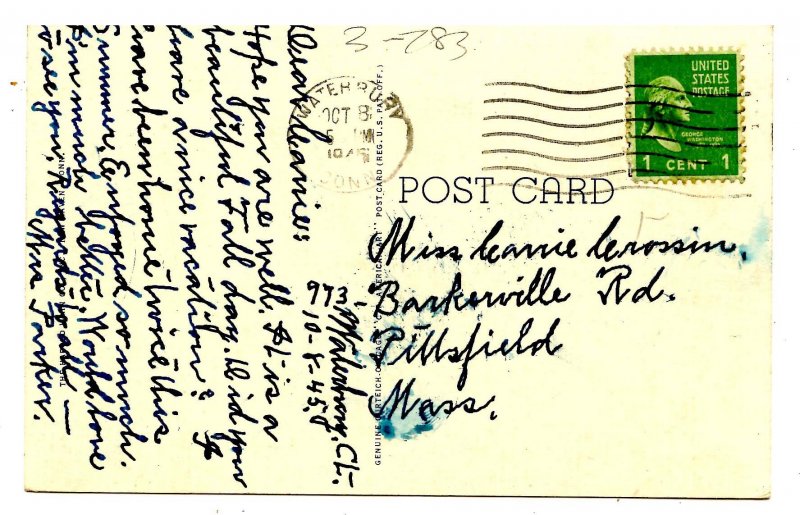 3-783
WATERBURY
OCT 8
5 PM
1945
CONN
UNITED
STATES
POSTAGE
GEORGE
WASHINGTON
1 CENT 1
POST CARD
Miss Carrie Crossin,
Barkerville Rd.
Pittsfield
Mass.
973-
Waterbury, Ct.
10-8-45.
Dear Carrie:
Hope you are well. It is a
beautiful Fall day. Did you
have a nice vacation? I
have been home twice this
Summer. Enjoyed so much.
I'm much better. Would love
to see you. Regards to all —
Mrs Parker.
POST CARD (REG. U.S. PAT. OFF.)
GENUINE CURTEICH-CHICAGO